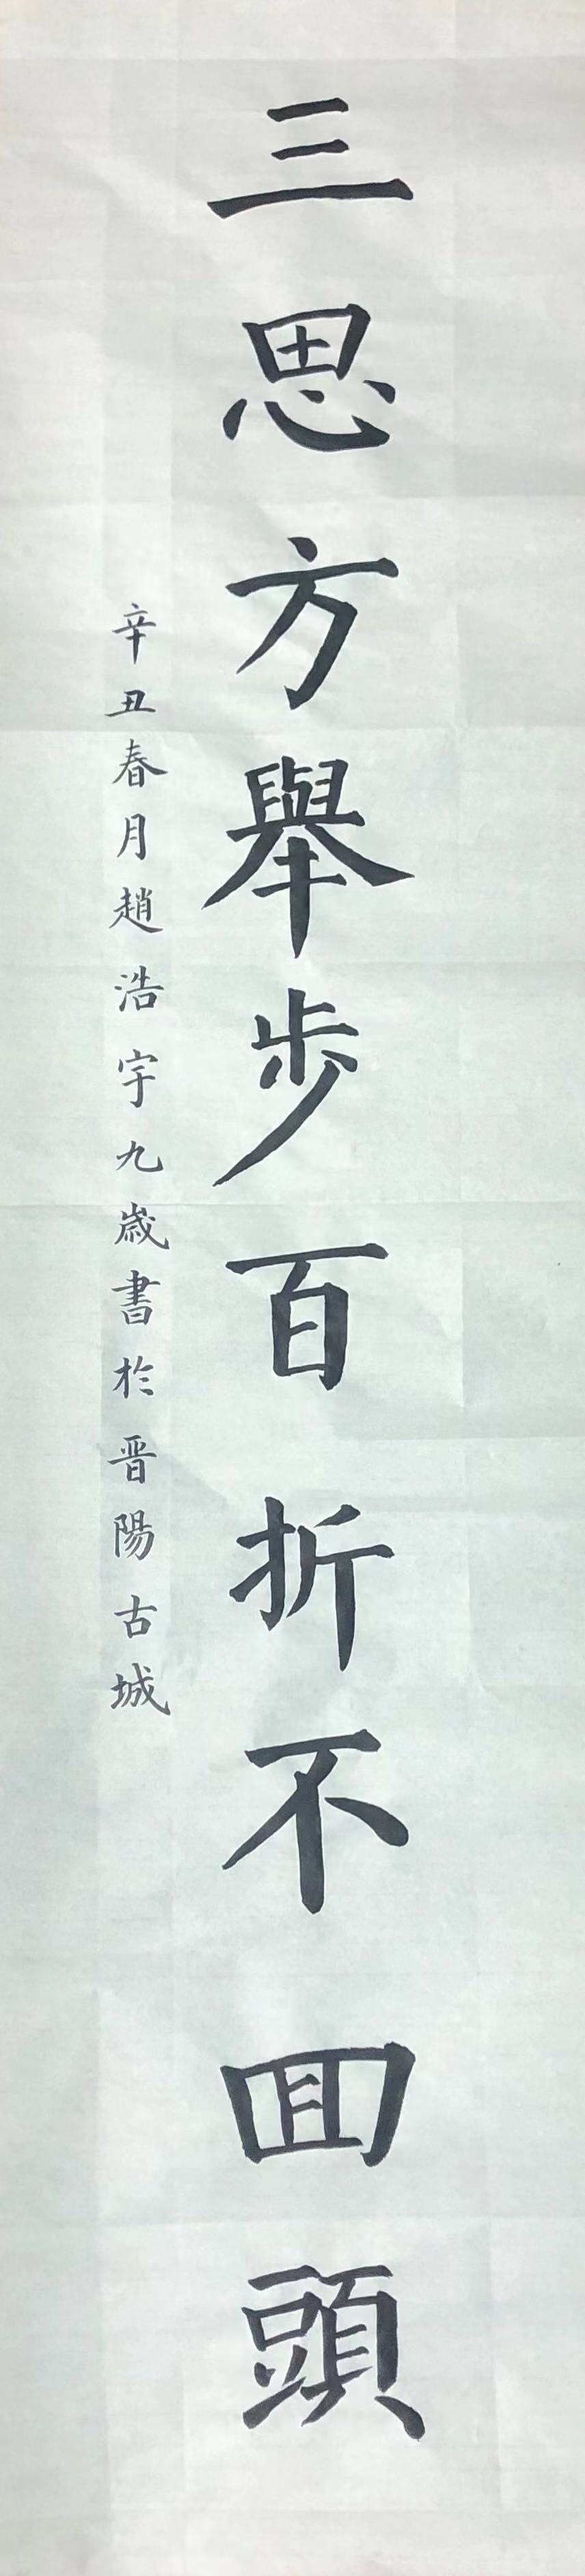 三思方舉步百折不回頭
辛丑春月趙浩宇九歲書於晋陽古城